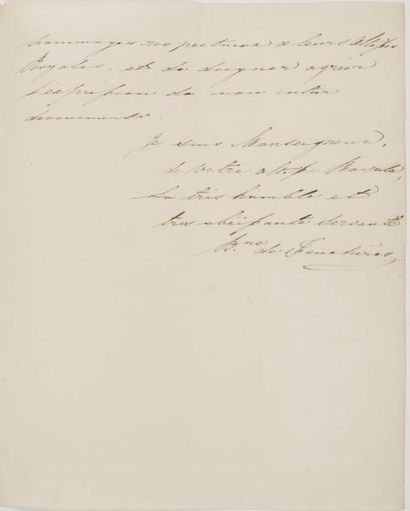 hommages respectueux à leurs Altesses
Royales, et de daigner agréer
l'expression de mon entier
dévouement.
Je suis Monseigneur,
de Votre Altesse Royale,
La très humble et
très obéissante servante
B.ne de